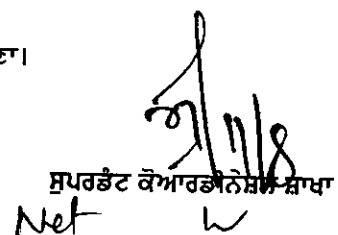 ਣਾ।
11/8
ਸੁਪਰਡੰਟ ਕੋਆਰਡੀਨੇਸ਼ਨ ਸ਼ਾਖਾ
Net